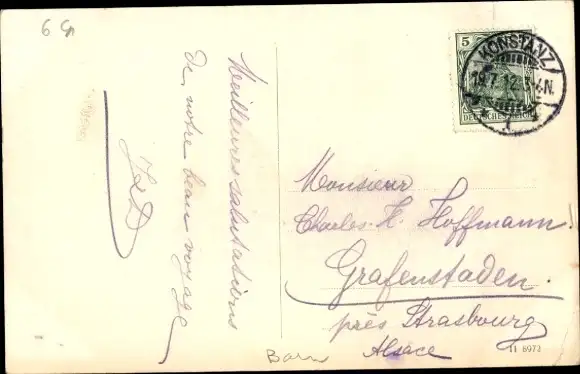 6 Gn
Meilleures salutations
de notre beau voyage
5
DEUTSCHES REICH
KONSTANZ
19.7.12. 3-4N.
* 1
Monsieur
Charles. H. Hoffmann.
Grafenstaden.
près Strasbourg
Alsace
11 8972